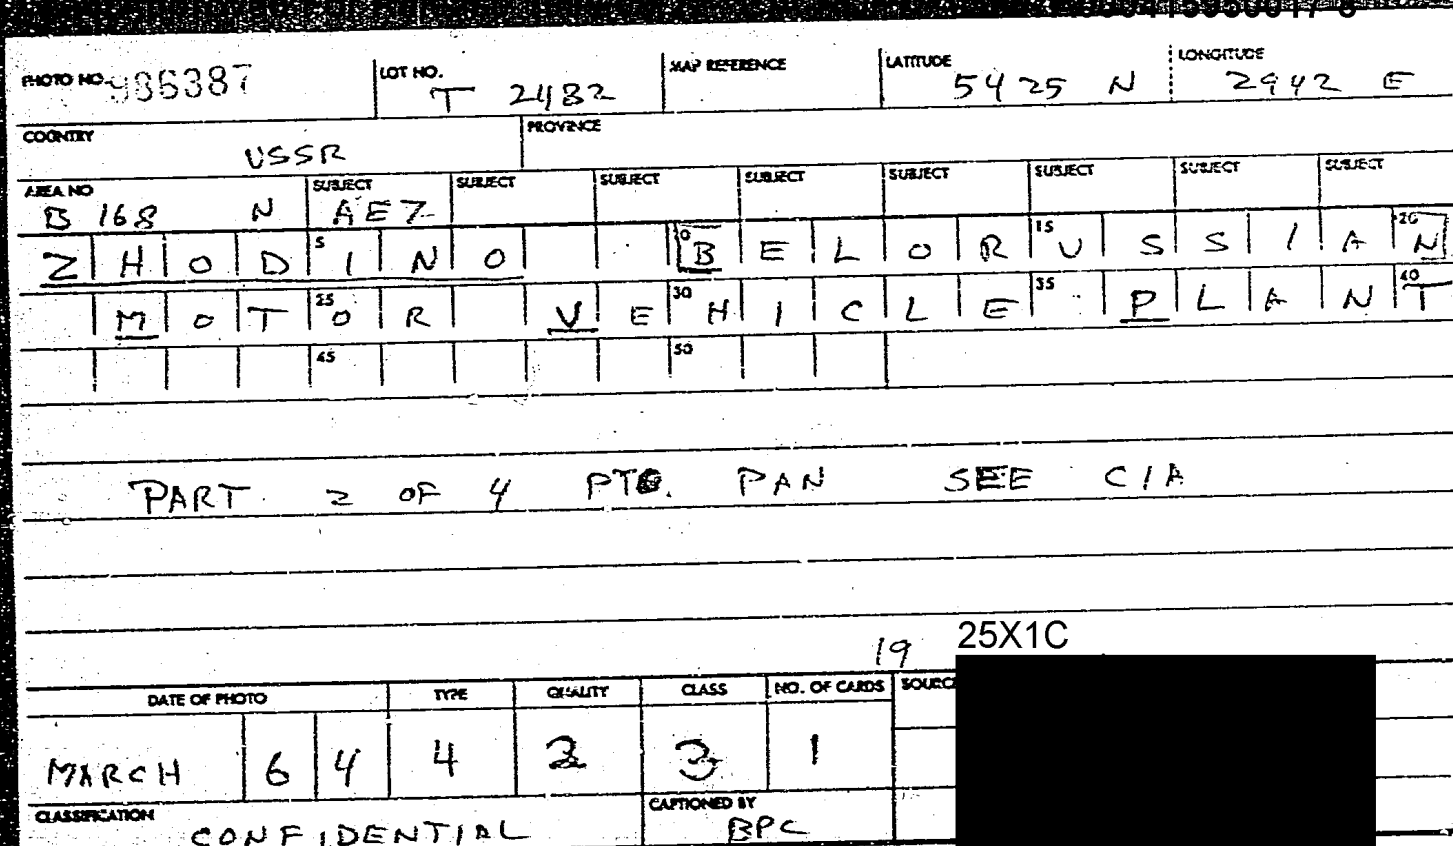 PHOTO NO. 986387 LOT NO. T 2482 MAP REFERENCE LATITUDE 5425 N LONGITUDE 2942 E
COUNTRY USSR PROVINCE
AREA NO B 168 N SUBJECT AE7 SUBJECT SUBJECT SUBJECT SUBJECT SUBJECT SUBJECT SUBJECT
ZHODINO BELORUSSIAN 5 10 15 20
MOTOR VEHICLE PLANT 25 30 35 40
45 50
PART 2 OF 4 PTO. PAN SEE CIA
19 25X1C
DATE OF PHOTO TYPE QUALITY CLASS NO. OF CARDS SOURCE
MARCH 64 4 2 3 1
CLASSIFICATION CONFIDENTIAL CAPTIONED BY BPC